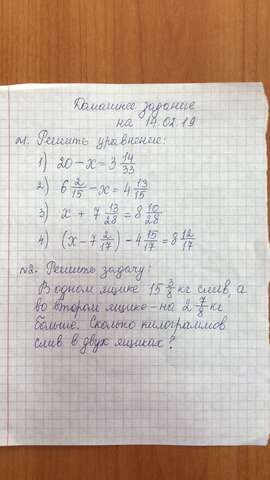 Домашнее задание
на 14.02.19
№1. Решить уравнение:
1) 20 - x = 3 14/33
2) 6 2/15 - x = 4 13/15
3) x + 7 13/28 = 8 10/28
4) (x - 7 2/17) - 4 15/17 = 8 12/17
№2. Решить задачу:
В одном ящике 15 3/8 кг слив, а
во втором ящике - на 2 7/8 кг
больше. Сколько килограммов
слив в двух ящиках?